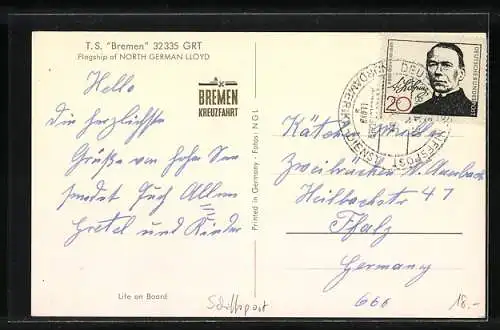 T.S. "Bremen" 32335 GRT
Flagship of NORTH GERMAN LLOYD
BREMEN
KREUZFAHRT
Hello
die herzlichste
Grüße von hoher See
sendet Euch Allen
Gretel und Kinder
Life on Board
Schiffspost
Printed in Germany · Fotos: NGL
DEUTSCHE BUNDESPOST
20
Kätchen
Zweibrücken
Heilbachstr 47
Pfalz
Germany
666
18.-